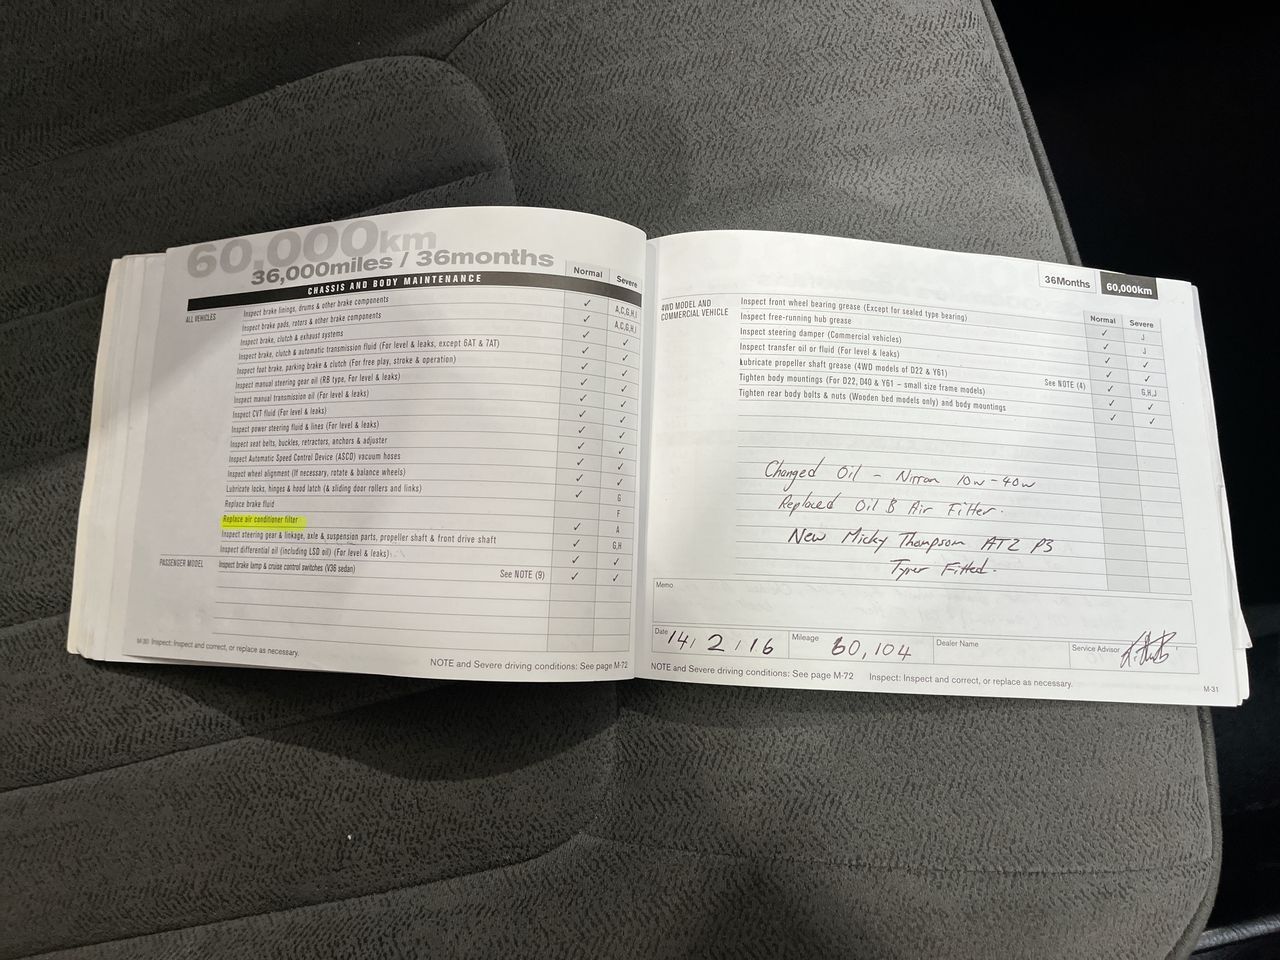 60,000km
36,000miles / 36months
Normal Severe
CHASSIS AND BODY MAINTENANCE
ALL VEHICLES
Inspect brake linings, drums & other brake components ✓ A,C,G,H,I
Inspect brake pads, rotors & other brake components ✓ A,C,G,H,I
Inspect brake, clutch & exhaust systems ✓ ✓
Inspect brake, clutch & automatic transmission fluid (For level & leaks, except 6AT & 7AT) ✓ ✓
Inspect foot brake, parking brake & clutch (For free play, stroke & operation) ✓ ✓
Inspect manual steering gear oil (RB type, For level & leaks) ✓ ✓
Inspect manual transmission oil (For level & leaks) ✓ ✓
Inspect CVT fluid (For level & leaks) ✓ ✓
Inspect power steering fluid & lines (For level & leaks) ✓ ✓
Inspect seat belts, buckles, retractors, anchors & adjuster ✓ ✓
Inspect Automatic Speed Control Device (ASCD) vacuum hoses ✓ ✓
Inspect wheel alignment (If necessary, rotate & balance wheels) ✓ ✓
Lubricate locks, hinges & hood latch (& sliding door rollers and links) ✓ G
Replace brake fluid F
Replace air conditioner filter ✓ A
Inspect steering gear & linkage, axle & suspension parts, propeller shaft & front drive shaft ✓ G,H
Inspect differential oil (including LSD oil) (For level & leaks) ✓ ✓
PASSENGER MODEL
Inspect brake lamp & cruise control switches (V36 sedan) See NOTE (9) ✓ ✓
M-30 Inspect: Inspect and correct, or replace as necessary.
NOTE and Severe driving conditions: See page M-72
36Months 60,000km
Normal Severe
4WD MODEL AND
COMMERCIAL VEHICLE
Inspect front wheel bearing grease (Except for sealed type bearing) ✓ J
Inspect free-running hub grease ✓ J
Inspect steering damper (Commercial vehicles) ✓ ✓
Inspect transfer oil or fluid (For level & leaks) ✓ ✓
Lubricate propeller shaft grease (4WD models of D22 & Y61) See NOTE (4) ✓ G,H,J
Tighten body mountings (For D22, D40 & Y61 – small size frame models) ✓ ✓
Tighten rear body bolts & nuts (Wooden bed models only) and body mountings ✓ ✓
Changed Oil - Nissan 10w-40w
Replaced Oil & Air Filter.
New Micky Thompson ATZ P3
Tyres Fitted.
Memo
Date 14 / 2 / 16 Mileage 60,104 Dealer Name Service Advisor
NOTE and Severe driving conditions: See page M-72 Inspect: Inspect and correct, or replace as necessary.
M-31